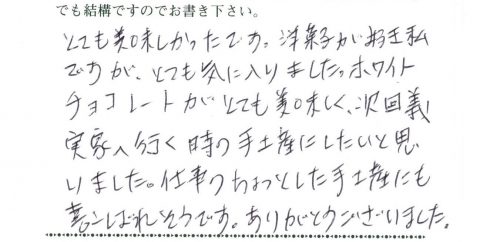 でも結構ですのでお書き下さい。
とても美味しかったです。洋菓子が好き私
ですが、とても気に入りました。ホワイト
チョコレートがとても美味しく、次回義
実家へ行く時の手土産にしたいと思
いました。仕事のちょっとした手土産にも
喜こばれそうです。ありがとうございました。